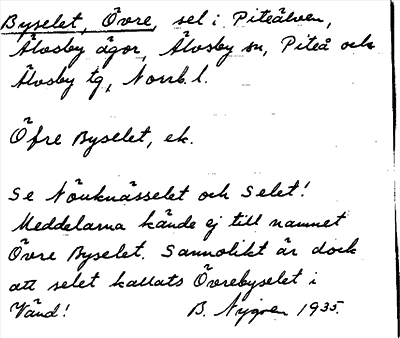 Byselet, Övre, sel i Piteälven,
Älvsby ägor, Älvsby sn, Piteå och
Älvsby tg, Norrb. l.
Öfre Byselet, ek.
Se Nönknässelet och Selet!
Meddelarna kände ej till namnet
Övre Byselet. Sannolikt är dock
att selet kallats Övrebyselet i
Vänd! B. Nygren 1935.